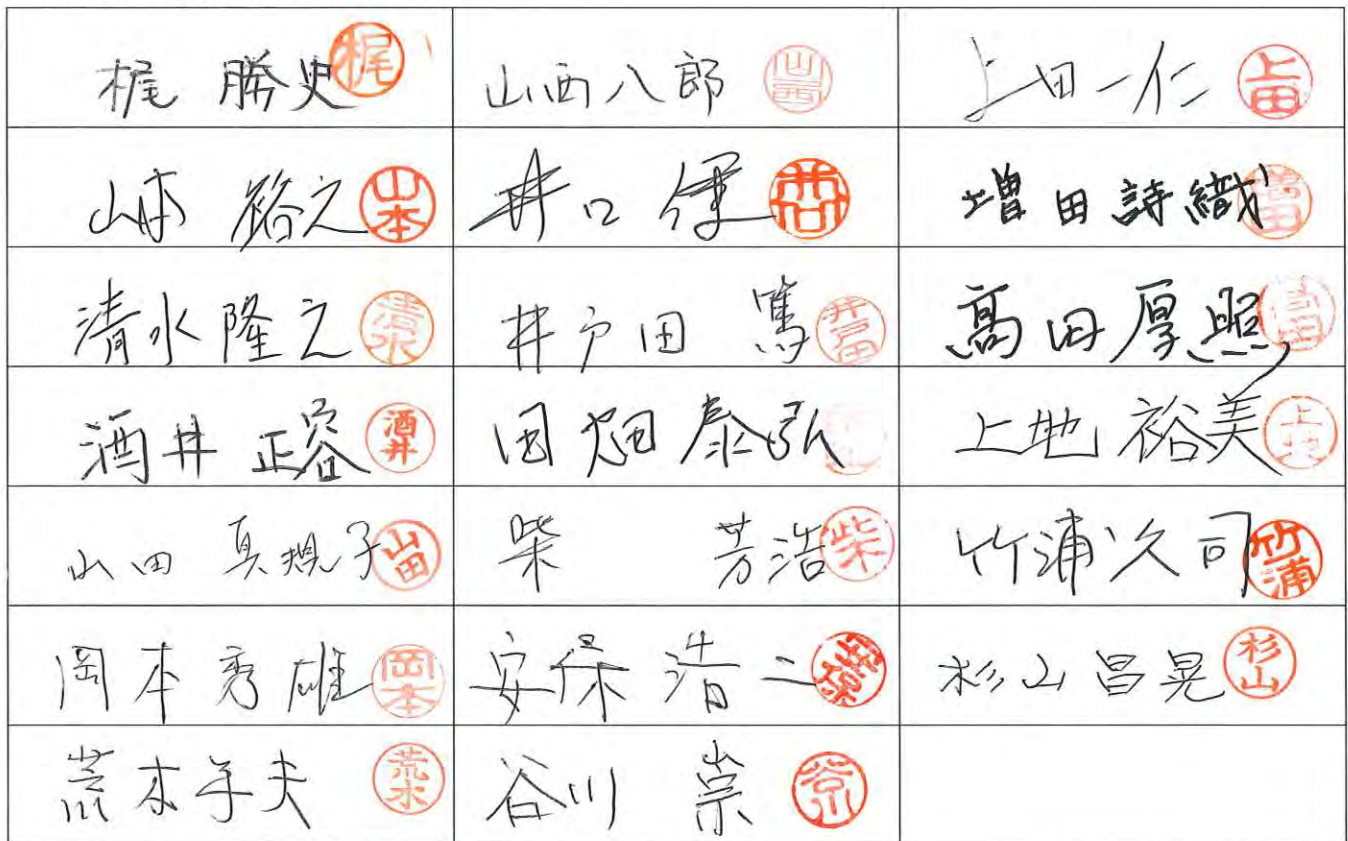 梶 勝史 梶 山西八郎 山西 上田一仁 上田
山本 裕之 山本 井口 健 井口 増田詩織 増田
清水隆之 清水 井戸田 篤 井戸田 高田厚照 高田
酒井 正容 酒井 田畑泰弘 上地 裕美 上地
山田 真規子 山田 柴 芳浩 柴 竹浦久司 竹浦
岡本秀雄 岡本 安保浩二 杉山昌晃 杉山
荒木 夫 荒木 谷川 崇 谷川